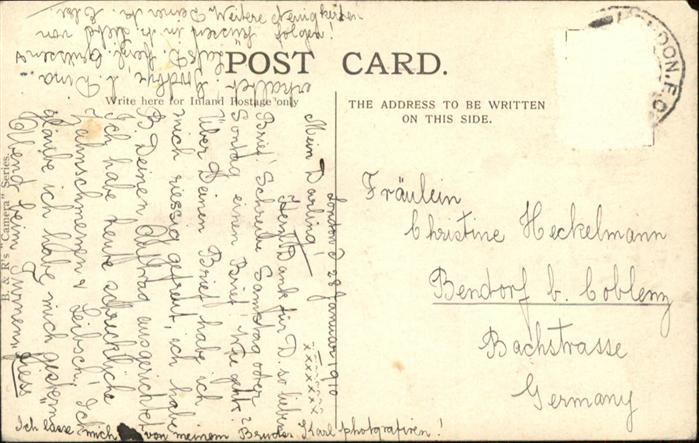 POST CARD.
Write here for Inland Postage only
THE ADDRESS TO BE WRITTEN
ON THIS SIDE.
B. & R's "Camera" Series.
LONDON. F.O
Fräulein
Christine Heckelmann
Bendorf b. Coblenz
Bachstrasse
Germany
London d 28 Januar 1910
Mein Darling! xxxxxxx
Herzl Dank für D. so lieben
Brief. Schreibe Samstag oder
Sontag einen Brief. Wie geht's?
Über Deinen Brief habe ich
mich riessig gefreut, ich habe
Deinen Auftrag ausgerichtet
Ich habe heute schreckliche
Zahnschmerzen & Leibsch. Ich
glaube ich habe mich gestern
Abend beim
erhalten
Herzl
Küssend in h Liebe von
Deiner
Weitere Neuigkeiten
folgen!
Ich lasse mich von meinem Bruder Karl photografiren!